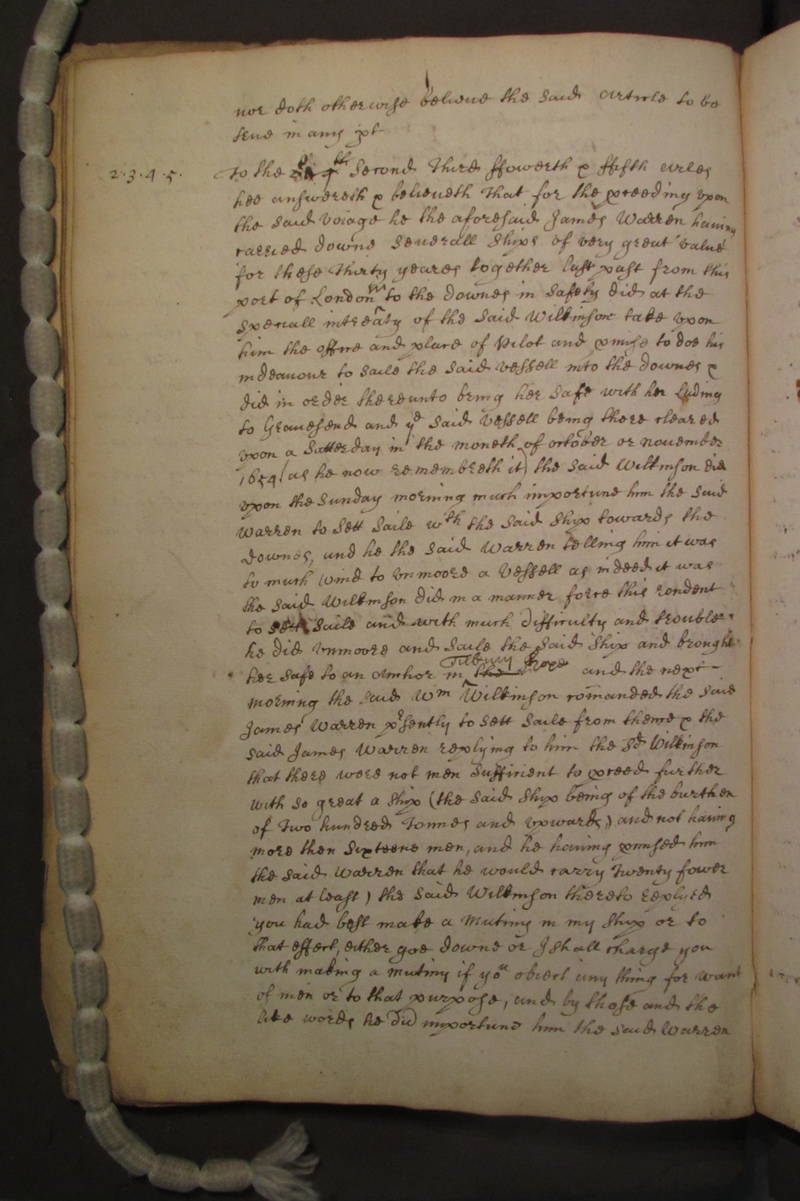 nor doth otherwise beleive the said Article to be
true in any pt
2.3.4.5. To the Second Third ffowerth & ffifth arles
hee answereth & beleiveth That for the preeding vpon
the said voiage he the aforesaid James Warren having
carried downe severall Ships of very great value
for these Thirty yeares together last past from this
port of London to the downes in safety did at the
speciall intreaty of the said Wilkinson take vpon
him the office and place of Pilot and pmise to doe his
indeavour to saile the said vessell into the downes &
did in order thereunto bring her safe with her Lading
to Gravesend and ye said vessell being there cleared
vpon a Satterday in the moneth of october or november
1654 (as he now remembreth it) the said Wilkinson did
vpon the Sunday morning much importune him the said
Warren to sett saile wth the said ship towards the
downes, and he the said Warren telling him it was
to much wind to vnmoore a vessell as indeed it was
the said Wilkinson did in a manner force this rendent
to sett saile and with much difficulty and trouble
he did vnmoore and saile the said ship and brought
her safe to an Anchor in Tilbury Hope and the next
morning the said Wm Wilkinson comanded the said
James Warren psently to sett saile from thence & the
said James Warren replying to him the sd Wilkinson
that there were not men sufficient to preed further
with so great a ship (the said ship being of the burthen
of Two hundred Tonnes and vpwards) and not having
more then Sixteene men, and he having pmised him
the said Warren that he would carry Twenty fower
men at least) the said Wilkinson thereto replyed
you had best make a Mutiny in my ship or to
that effect, either goe downe or I shall charge you
with making a mutiny if you obiect any thing for want
of men or to that purpose, and by those and the
like words he did importune him the said Warren